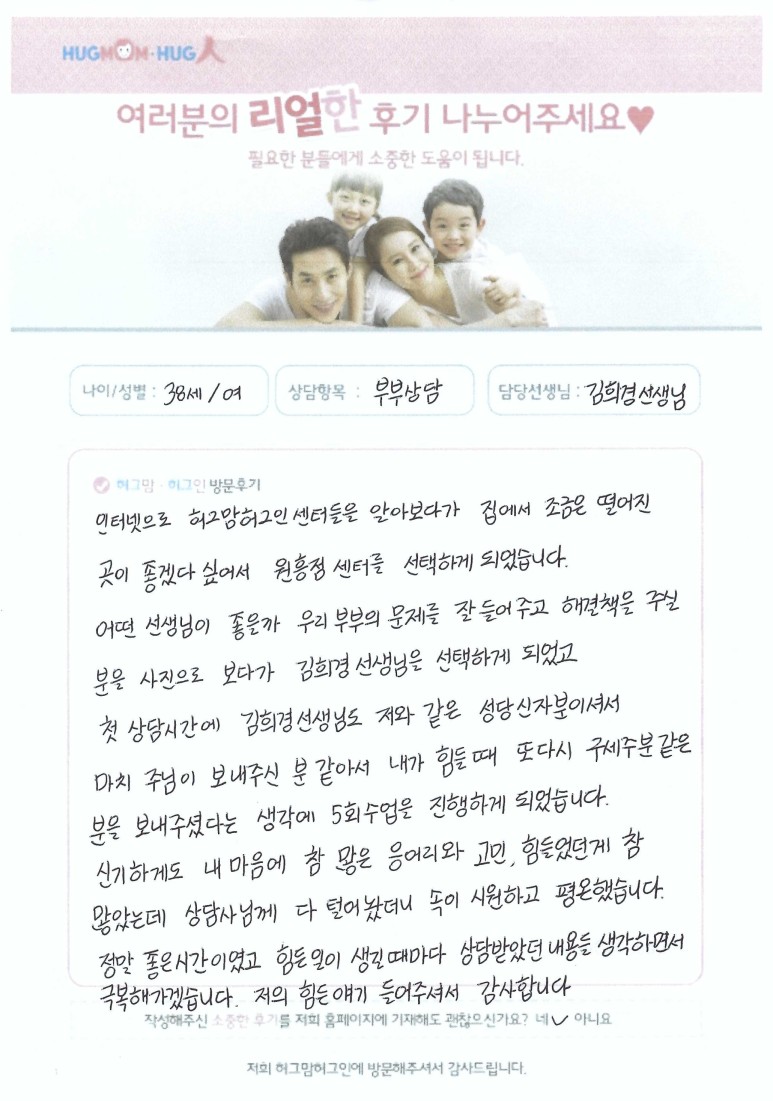 HUGMOM·HUG人
여러분의 리얼한 후기 나누어주세요♥
필요한 분들에게 소중한 도움이 됩니다.
나이/성별 : 38세/여 상담항목 : 부부상담 담당선생님 : 김희경선생님
허그맘·허그인 방문후기
인터넷으로 허그맘허그인 센터들을 알아보다가 집에서 조금은 떨어진
곳이 좋겠다 싶어서 원흥점 센터를 선택하게 되었습니다.
어떤 선생님이 좋을까 우리 부부의 문제를 잘 들어주고 해결책을 주실
분을 사진으로 보다가 김희경 선생님을 선택하게 되었고
첫 상담시간에 김희경선생님도 저와 같은 성당신자분이셔서
마치 주님이 보내주신 분 같아서 내가 힘들때 또다시 구세주분같은
분을 보내주셨다는 생각에 5회수업을 진행하게 되었습니다.
신기하게도 내 마음에 참 많은 응어리와 고민, 힘들었던게 참
많았는데 상담사님께 다 털어놨더니 속이 시원하고 평온했습니다.
정말 좋은시간이였고 힘든일이 생길때마다 상담받았던 내용들 생각하면서
극복해가겠습니다. 저의 힘든얘기 들어주셔서 감사합니다
작성해주신 소중한 후기를 저희 홈페이지에 기재해도 괜찮으신가요? 네✓ 아니요
저희 허그맘허그인에 방문해주셔서 감사드립니다.